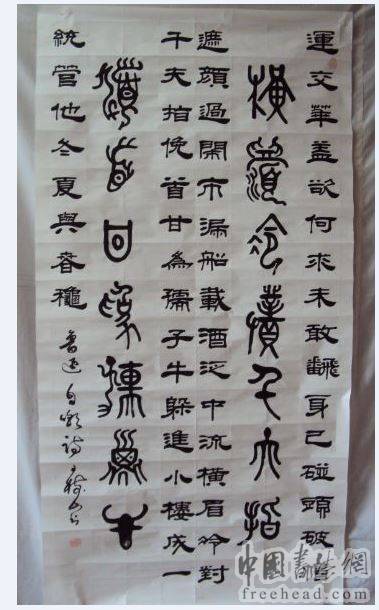 運交華蓋欲何求未敢飜身已碰頭破帽
橫眉冷對千夫指
遮顔過閙市漏船載酒泛中流横眉冷對
千夫指俛首甘為孺子牛躲進小樓成一
俯首甘為孺子牛
統管他冬夏與春穐
魯迅自嘲詩
中國書法網
www.freehead.com